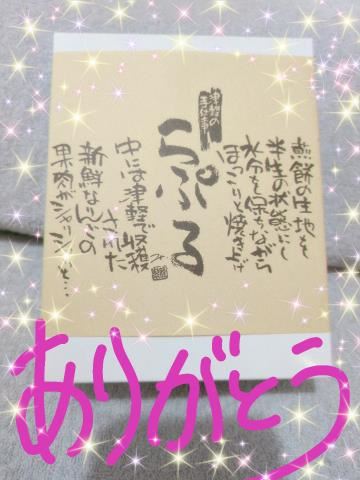 煎餅の生地を
半生の状態にし
水分を保ちながら
ほっこりと焼き上げ
津軽の
手仕事
らぷる
中には津軽で収穫
された
新鮮なりんごの
果肉がシャリシャリっと…
ありがとう